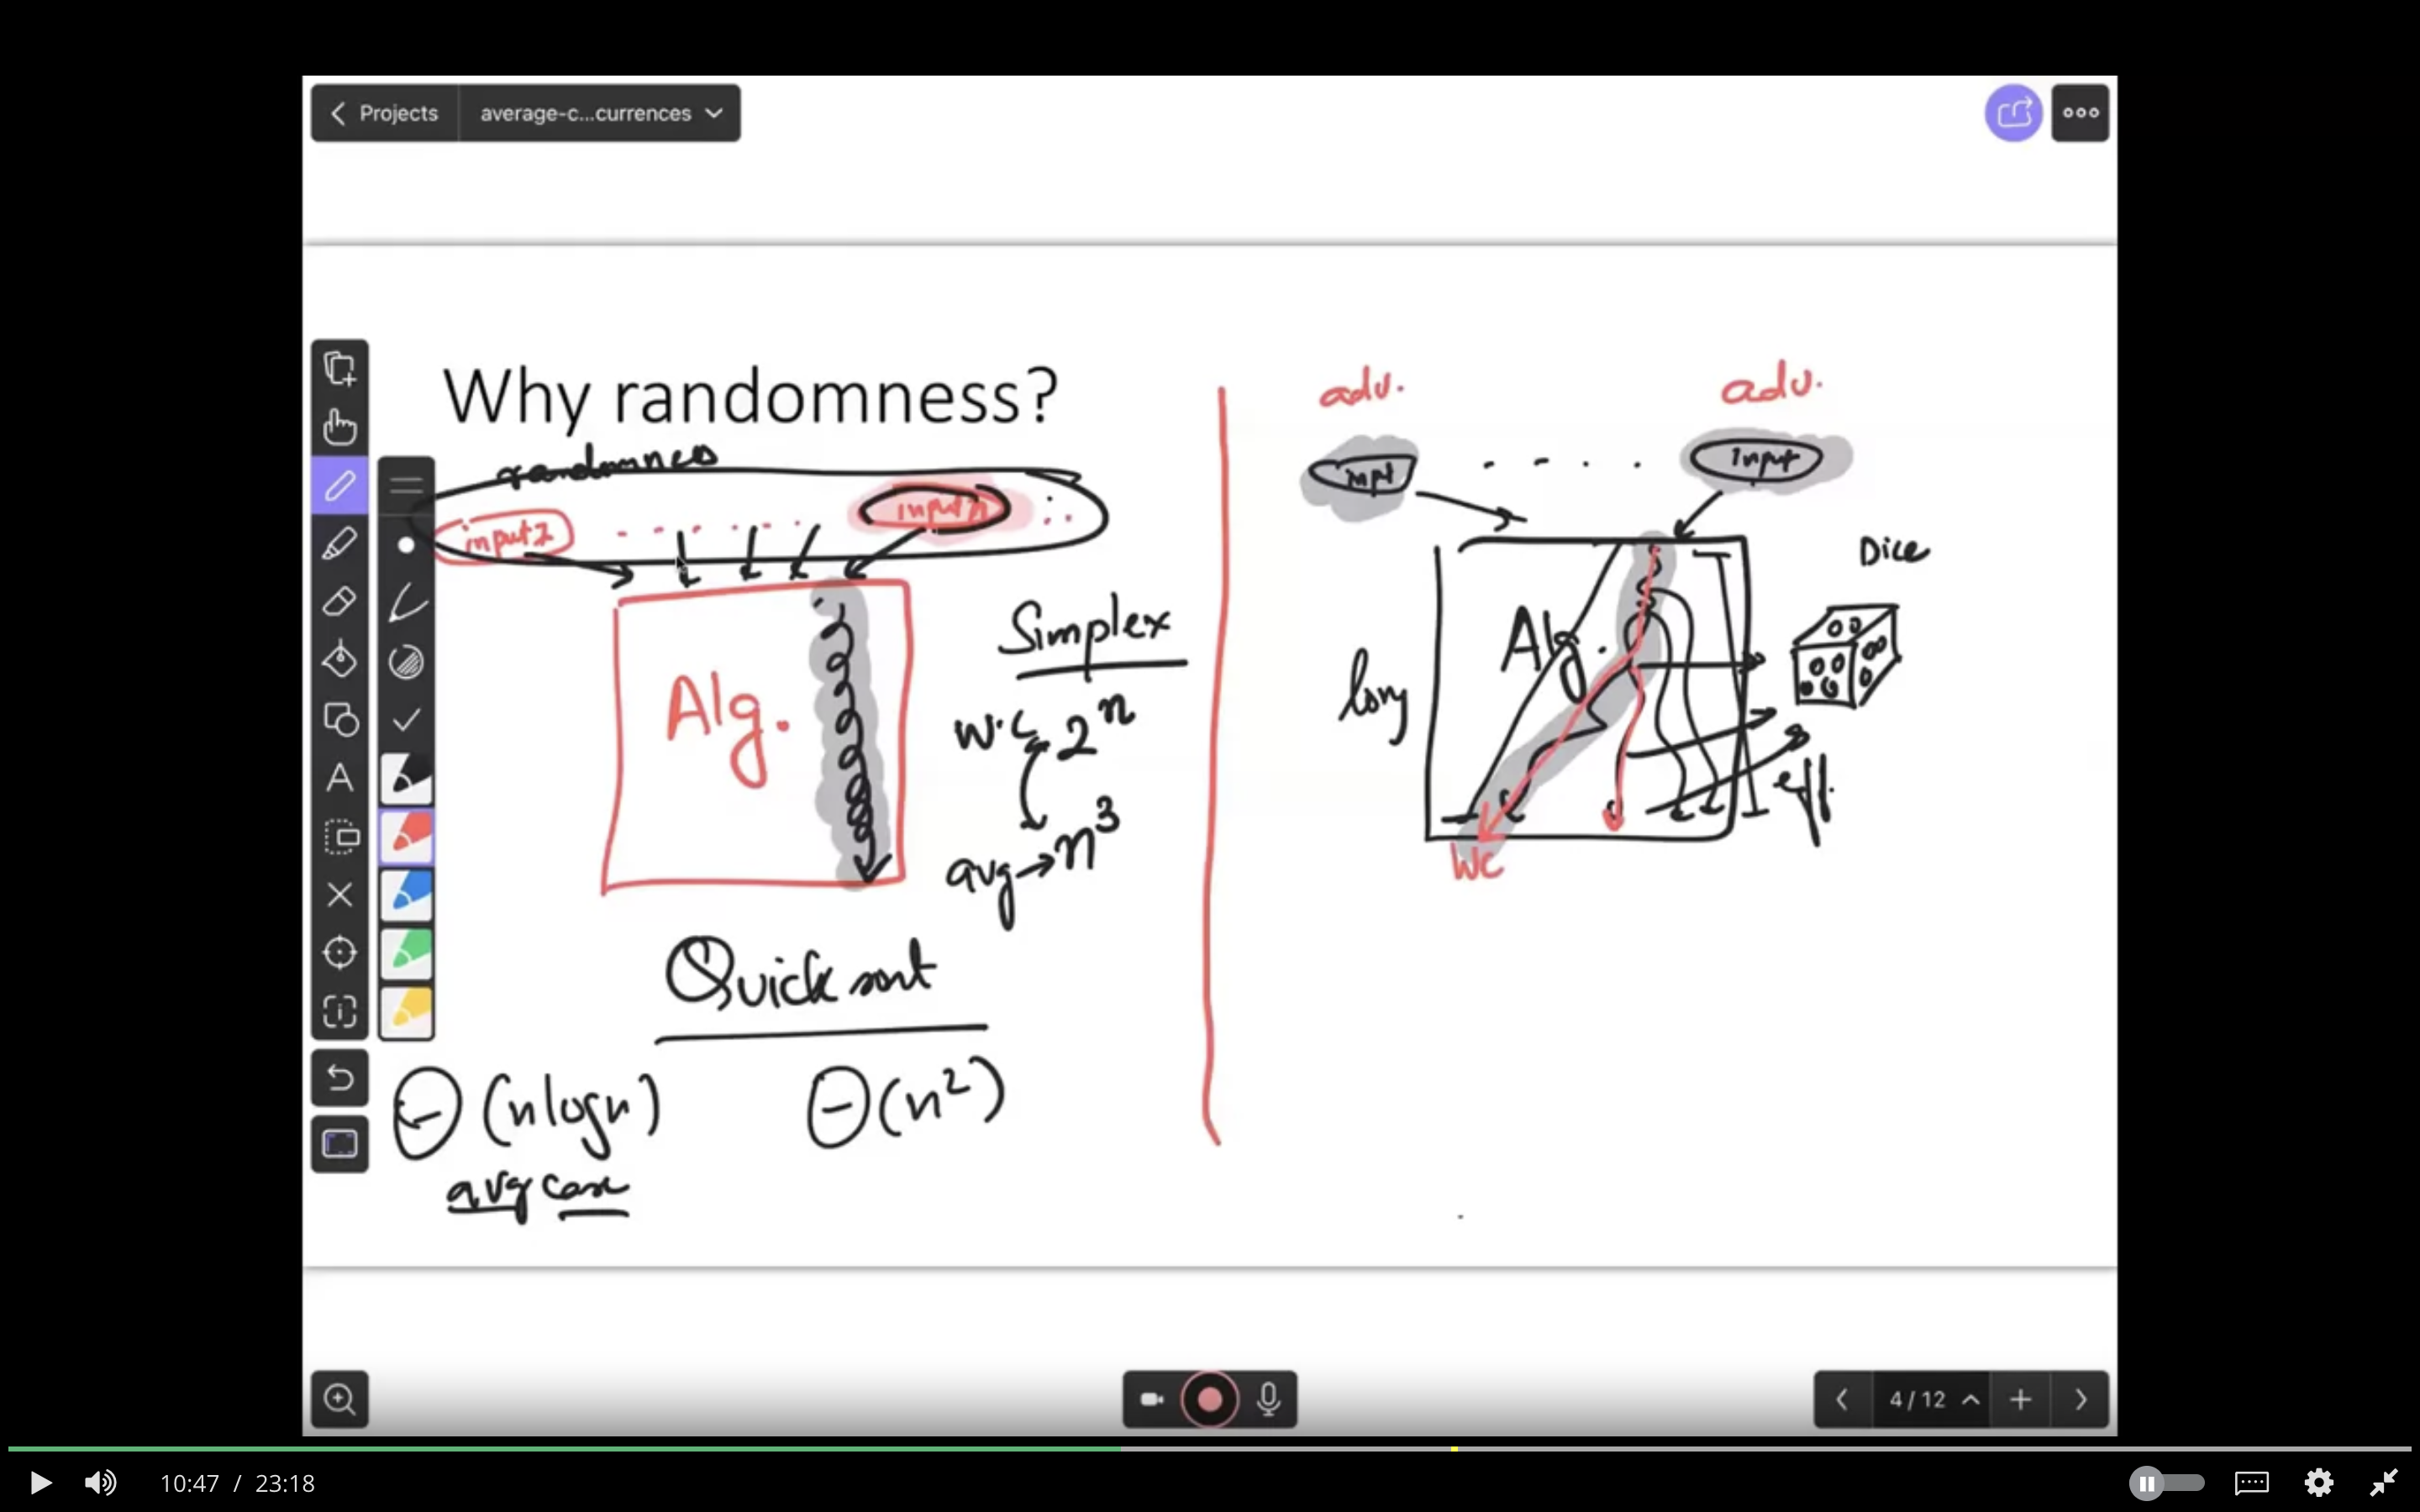 Projects
average-c...currences
Why randomness?
randomness
input2
input n
Alg.
Simplex
W.C 2^n
avg → n^3
Quick sort
Θ(nlogn)
Θ(n^2)
avg case
adv.
adv.
Inpt
Input
Dice
long
Alg.
eff.
WC
4 / 12
10:47 / 23:18